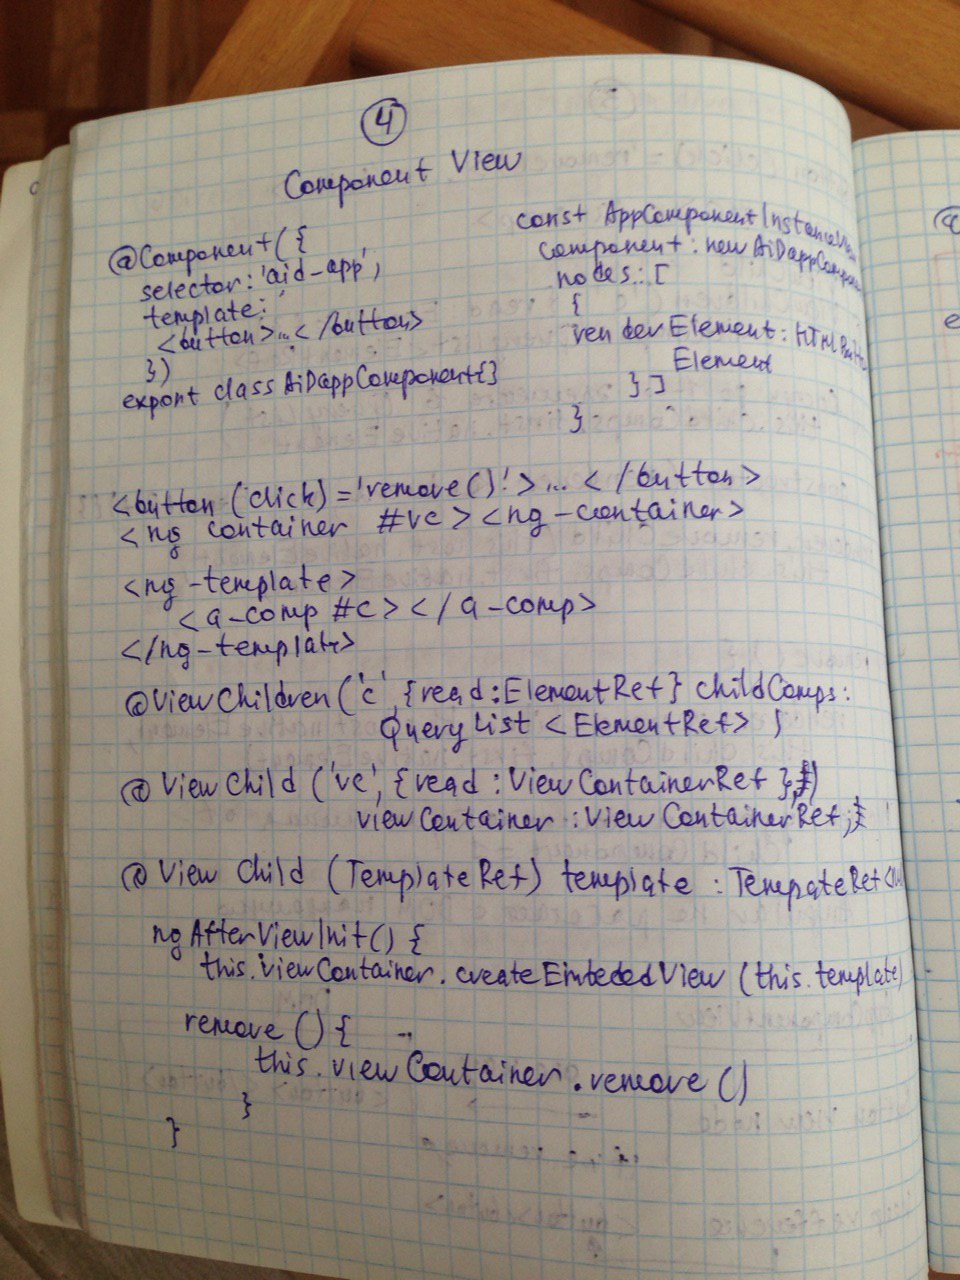 4
Component View
@Component({
selector: 'aid-app',
template: '
<button>...</button>
})
export class AiDappComponent{}
const AppComponentInstance
component: new AiDappCompone
nodes: [
{
renderElement: HTMLButto
Element
}.]
}
<button (click)='remove()'>...</button>
<ng container #vc><ng-container>
<ng-template>
<a-comp #c></a-comp>
</ng-template>
@ViewChildren('c', {read:ElementRef} childComps:
QueryList <ElementRef> ;
@ViewChild ('vc', {read: ViewContainerRef },)
viewContainer: ViewContainerRef;
@View Child (TemplateRef) template : TempateRef<
ngAfterViewInit() {
this.viewContainer.createEmbededView (this.template)
remove () {
this.viewContainer.remove()
}
}